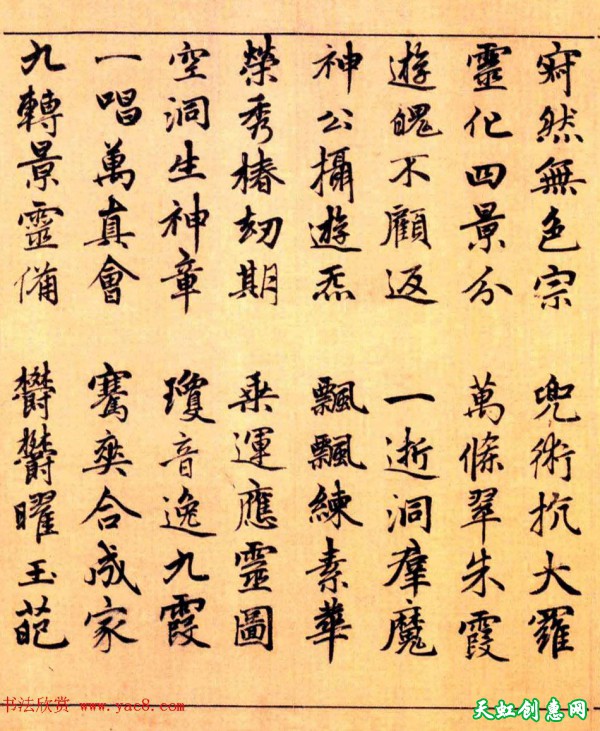 寂然無色宗 兜術抗大羅
靈化四景分 萬條翠朱霞
遊魄不顧返 一逝洞群魔
神公攝遊炁 飄飄練素華
榮秀椿劫期 乘運應靈圖
空洞生神章 瓊音逸九霞
一唱萬真會 騫爽合成家
九轉景靈備 欝欝曜玉葩
书法欣赏 www.yac8.com
天虹创意网